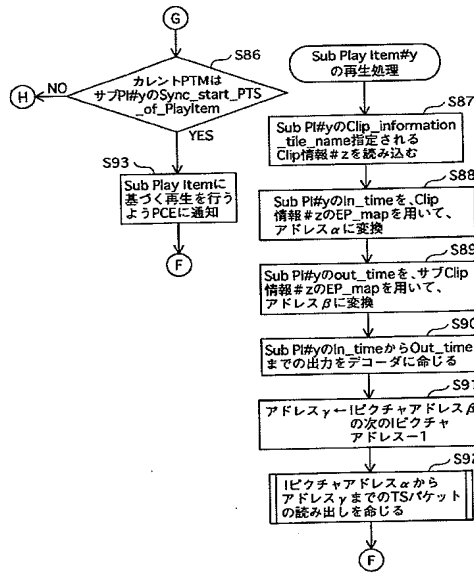 G
S86
カレントPTMは
サブPI#yのSync_start_PTS
_of_PlayItem
NO
H
YES
S93
Sub Play Itemに
基づく再生を行う
ようPCEに通知
F
Sub Play Item#y
の再生処理
S87
Sub PI#yのClip_information
_tile_name指定される
Clip情報#zを読み込む
S88
Sub PI#yのIn_timeを、Clip
情報#zのEP_mapを用いて、
アドレスαに変換
S89
Sub PI#yのout_timeを、サブClip
情報#zのEP_mapを用いて、
アドレスβに変換
S90
Sub PI#yのIn_timeからOut_time
までの出力をデコーダに命じる
S91
アドレスγ←Iピクチャアドレスβ
の次のIピクチャ
アドレス−1
S92
Iピクチャアドレスαから
アドレスγまでのTSパケット
の読み出しを命じる
F